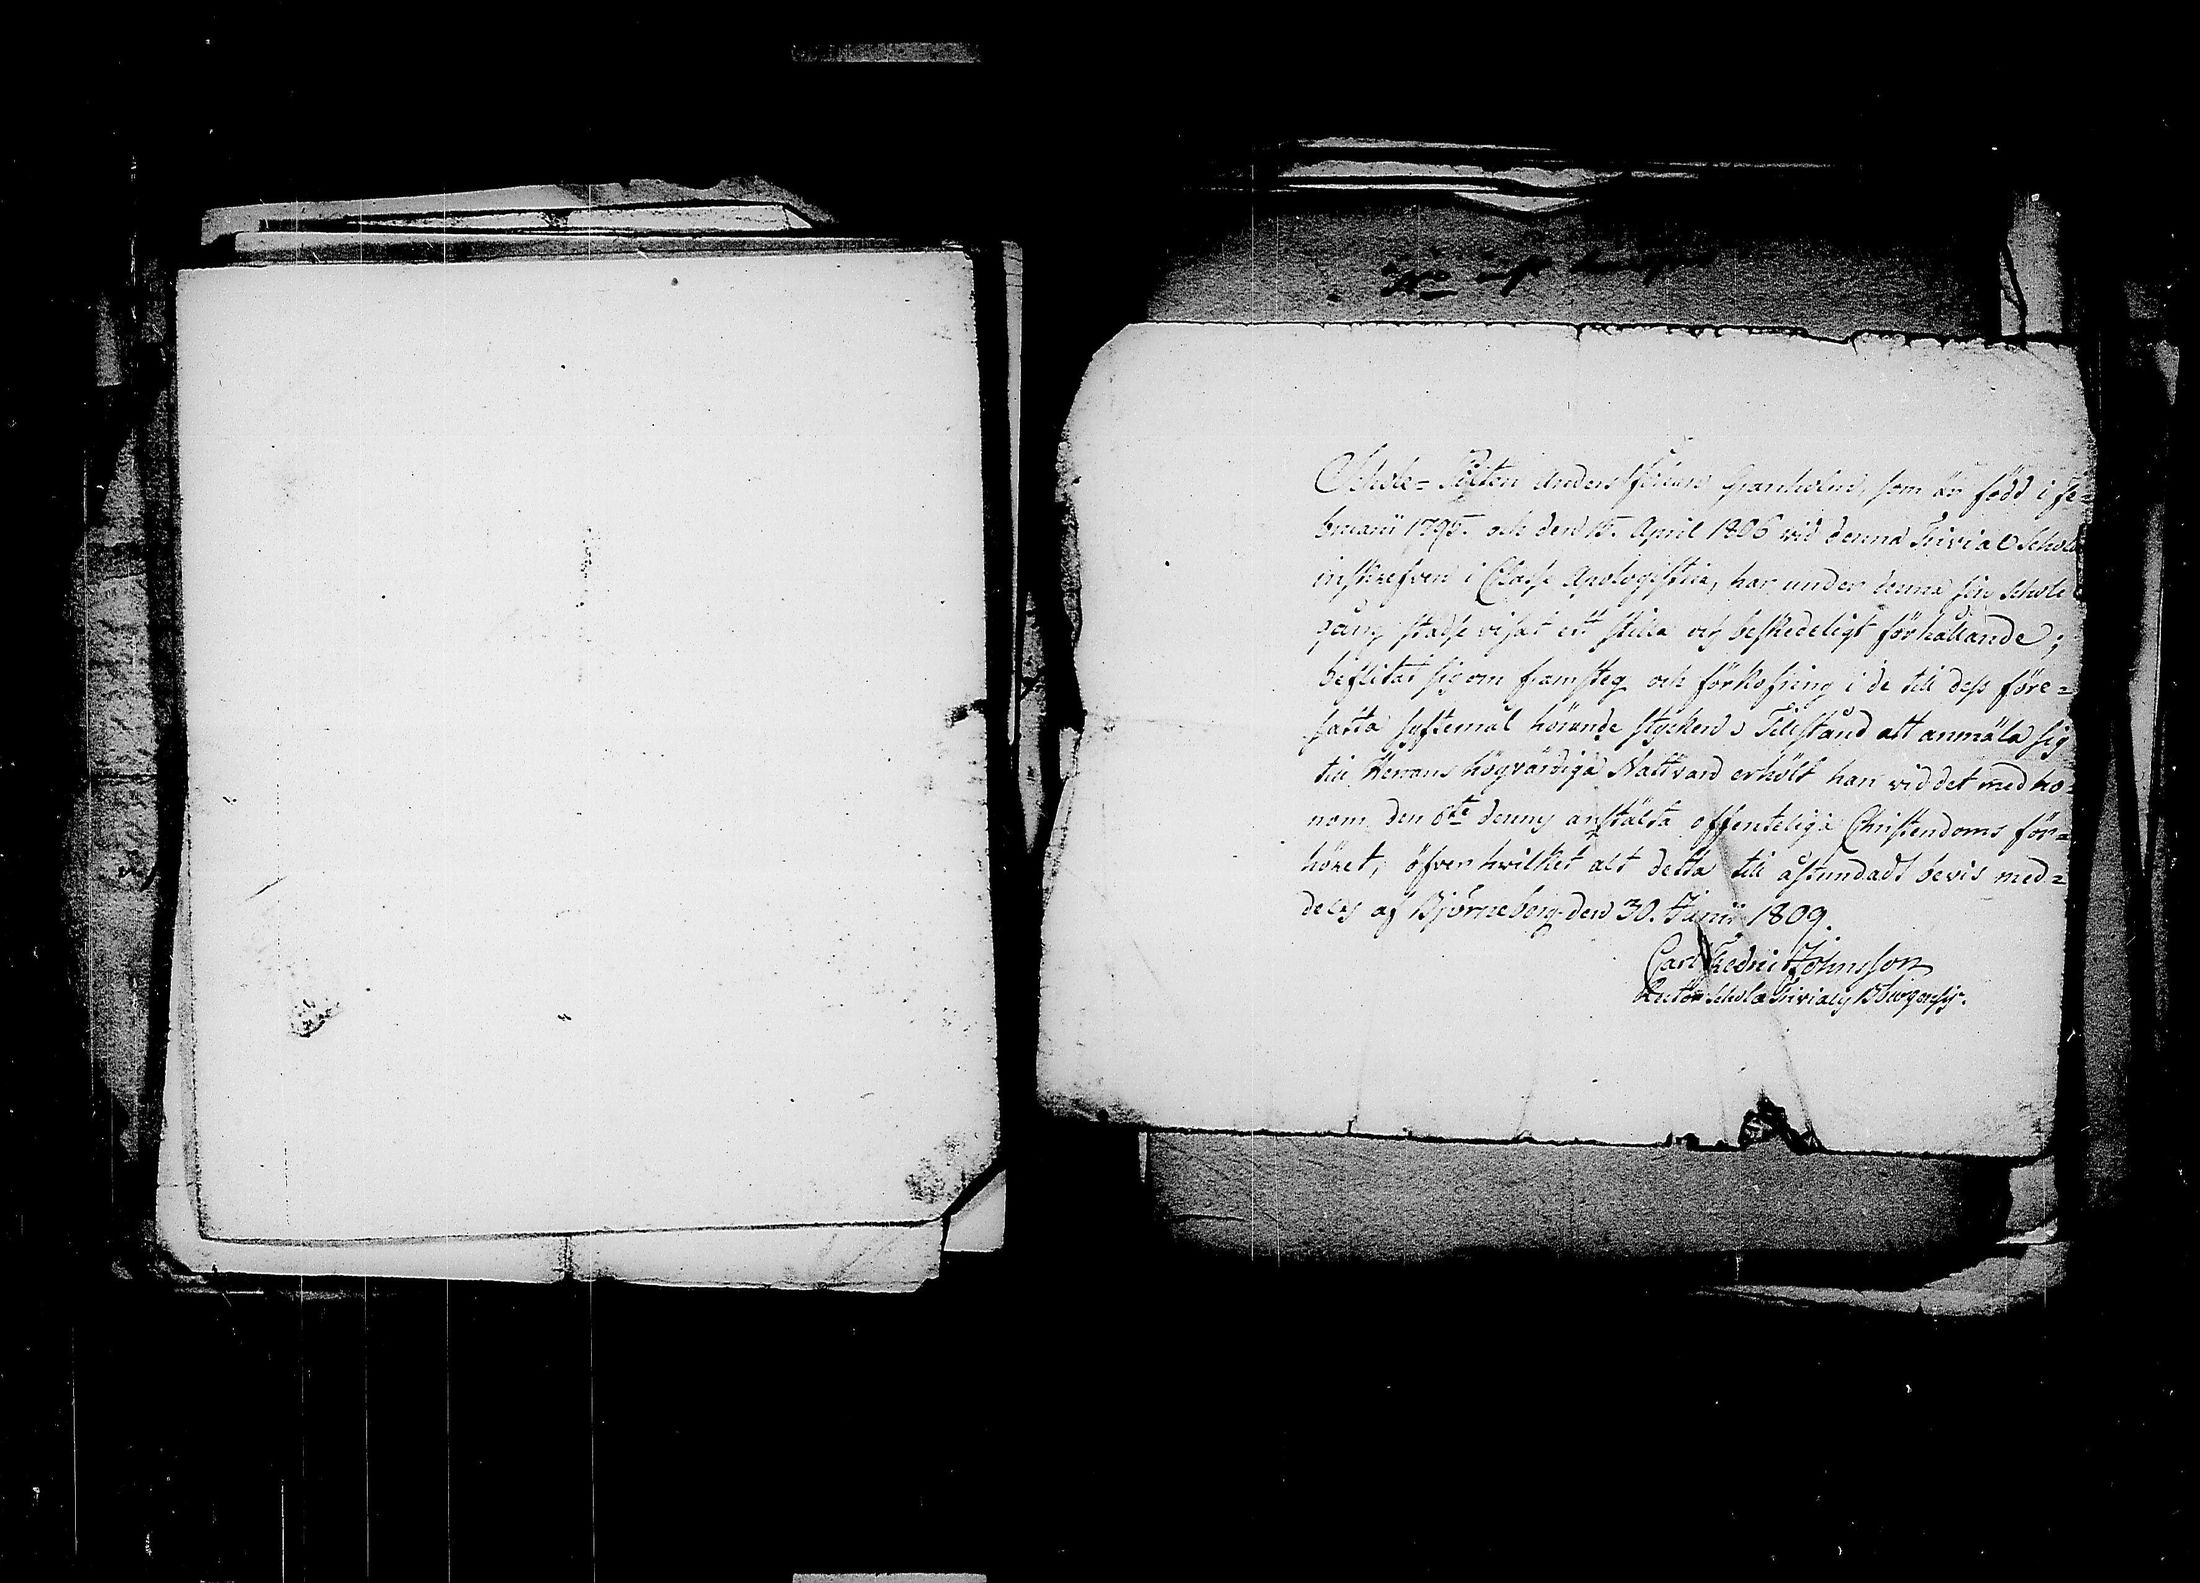 Schole-Pilten Anders Johan Granholm, som är född i Fe=
bruarii 1795. och den 15. April 1806 vid denna Trivial Schola
inskrefven i Classe Apologistica, har under denna sin Schole
gång städse visat ett stilla och beskedeligt förhållande;
beflitat sig om framsteg och förkofring i de till dess före=
satta systemål hörande stycken. Tillstånd att anmäla sig
till Herrans högvärdiga Nattvard erhölt han vid det med ho=
nom den 8te dennes anstälta offenteliga Christendoms för=
höret, öfver hvilket alt detta till åstundadt bevis med=
delas af Björneborg den 30. Junii 1809.
Carl Fredric Johnsson
Rector Scholæ Trivialis Bburgensis.